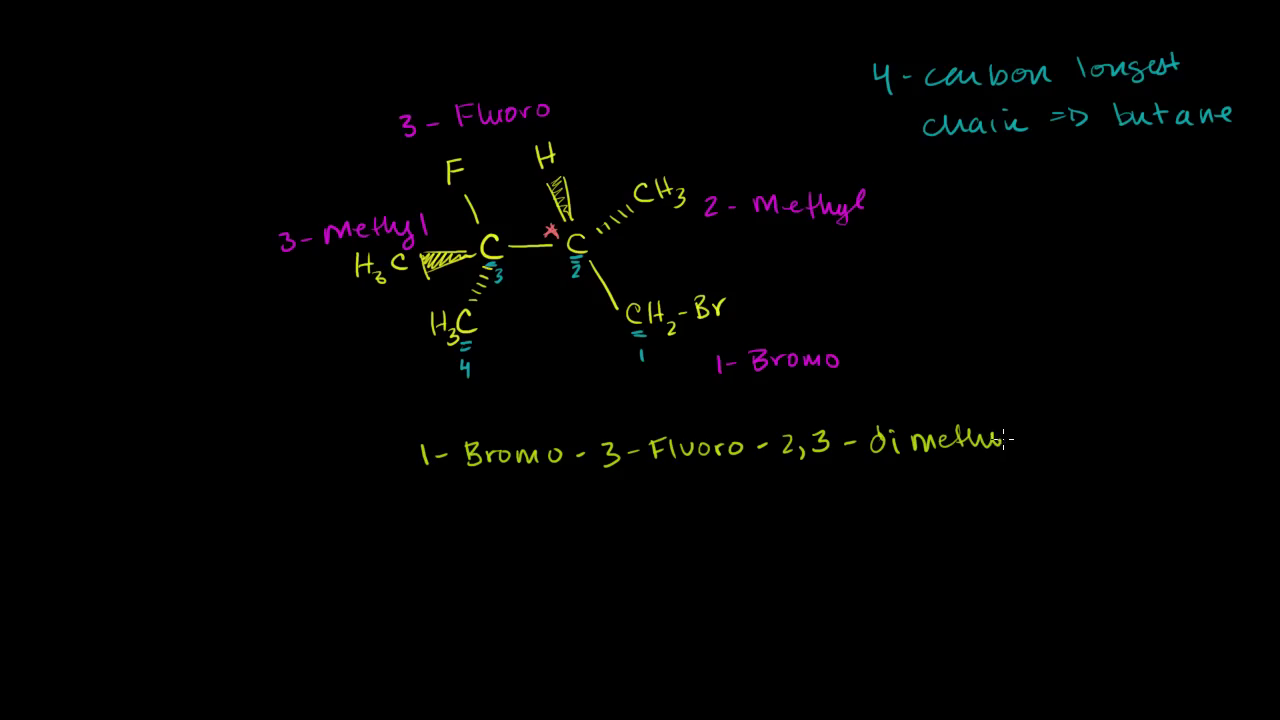 4-carbon longest
chain => butane
3-Fluoro
F H
CH3 2-Methyl
3-Methyl
H3C C C
3 2
H3C CH2-Br
4 1
1-Bromo
1-Bromo-3-Fluoro-2,3-dimethy